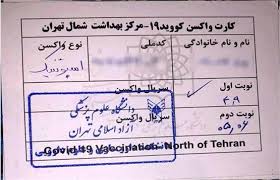 کارت واکسن کووید۱۹-مرکز بهداشت شمال تهران
نام و نام خانوادگی
کدملی
نوع واکسن
اسپوتنیک
نوبت اول
سریال واکسن
۴،۹
دانشگاه علوم پزشکی
آزاد اسلامی تهران
نوبت دوم
سریال واکسن
۰۵،۰۶
Covid-19 Vaccination North of Tehran